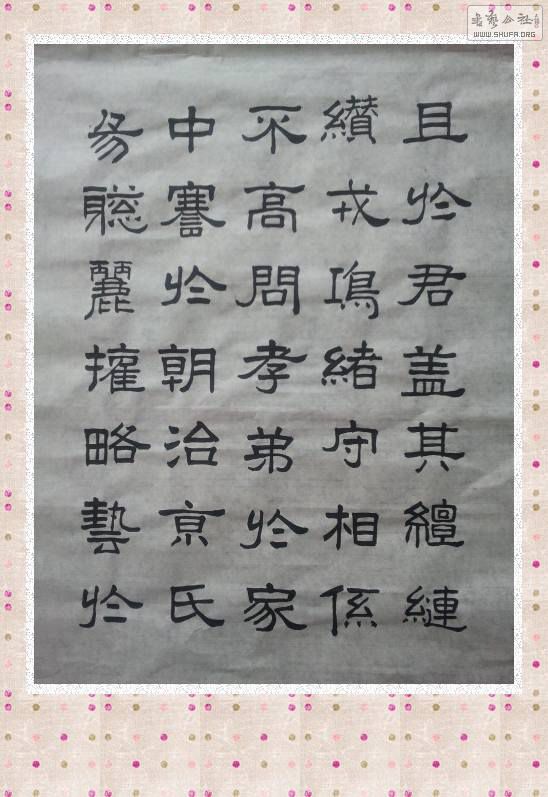 且於君盖其繵縺
纘戎鴻緒守相係
不高問孝弟於家
中謇於朝治京氏
易聦麗權略藝於
书艺公社
WWW.SHUFA.ORG